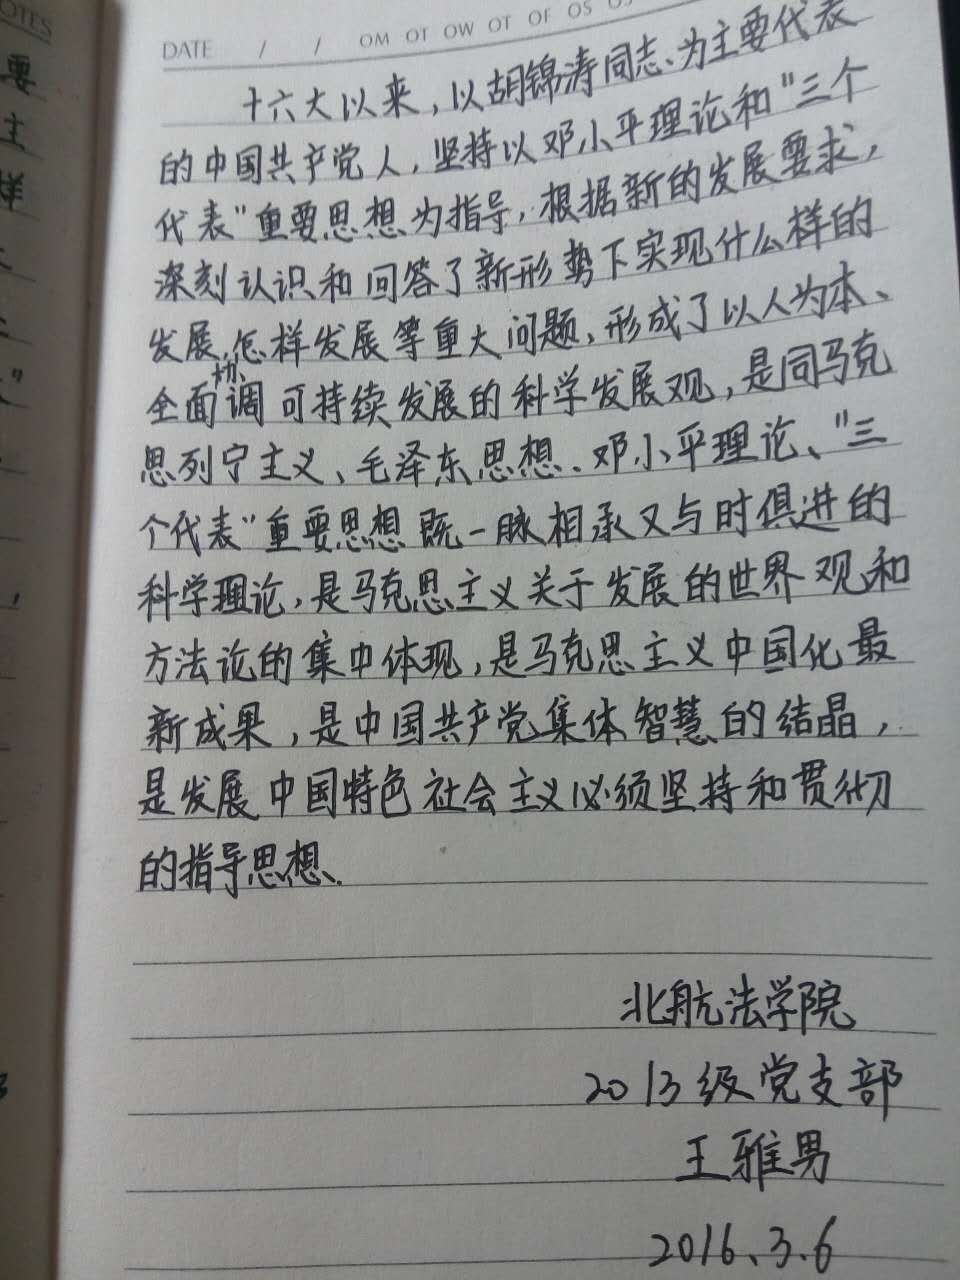 OTES
DATE / / OM OT OW OT OF OS
要
主
样
十六大以来,以胡锦涛同志、为主要代表
的中国共产党人,坚持以邓小平理论和"三个
代表"重要思想为指导,根据新的发展要求,
深刻认识和回答了新形势下实现什么样的
发展,怎样发展等重大问题,形成了以人为本、
全面协调可持续发展的科学发展观,是同马克
思列宁主义、毛泽东思想、邓小平理论、"三
个代表"重要思想既一脉相承又与时俱进的
科学理论,是马克思主义关于发展的世界观和
方法论的集中体现,是马克思主义中国化最
新成果,是中国共产党集体智慧的结晶,
是发展中国特色社会主义必须坚持和贯彻
的指导思想.
北航法学院
2013级党支部
王雅男
2016.3.6